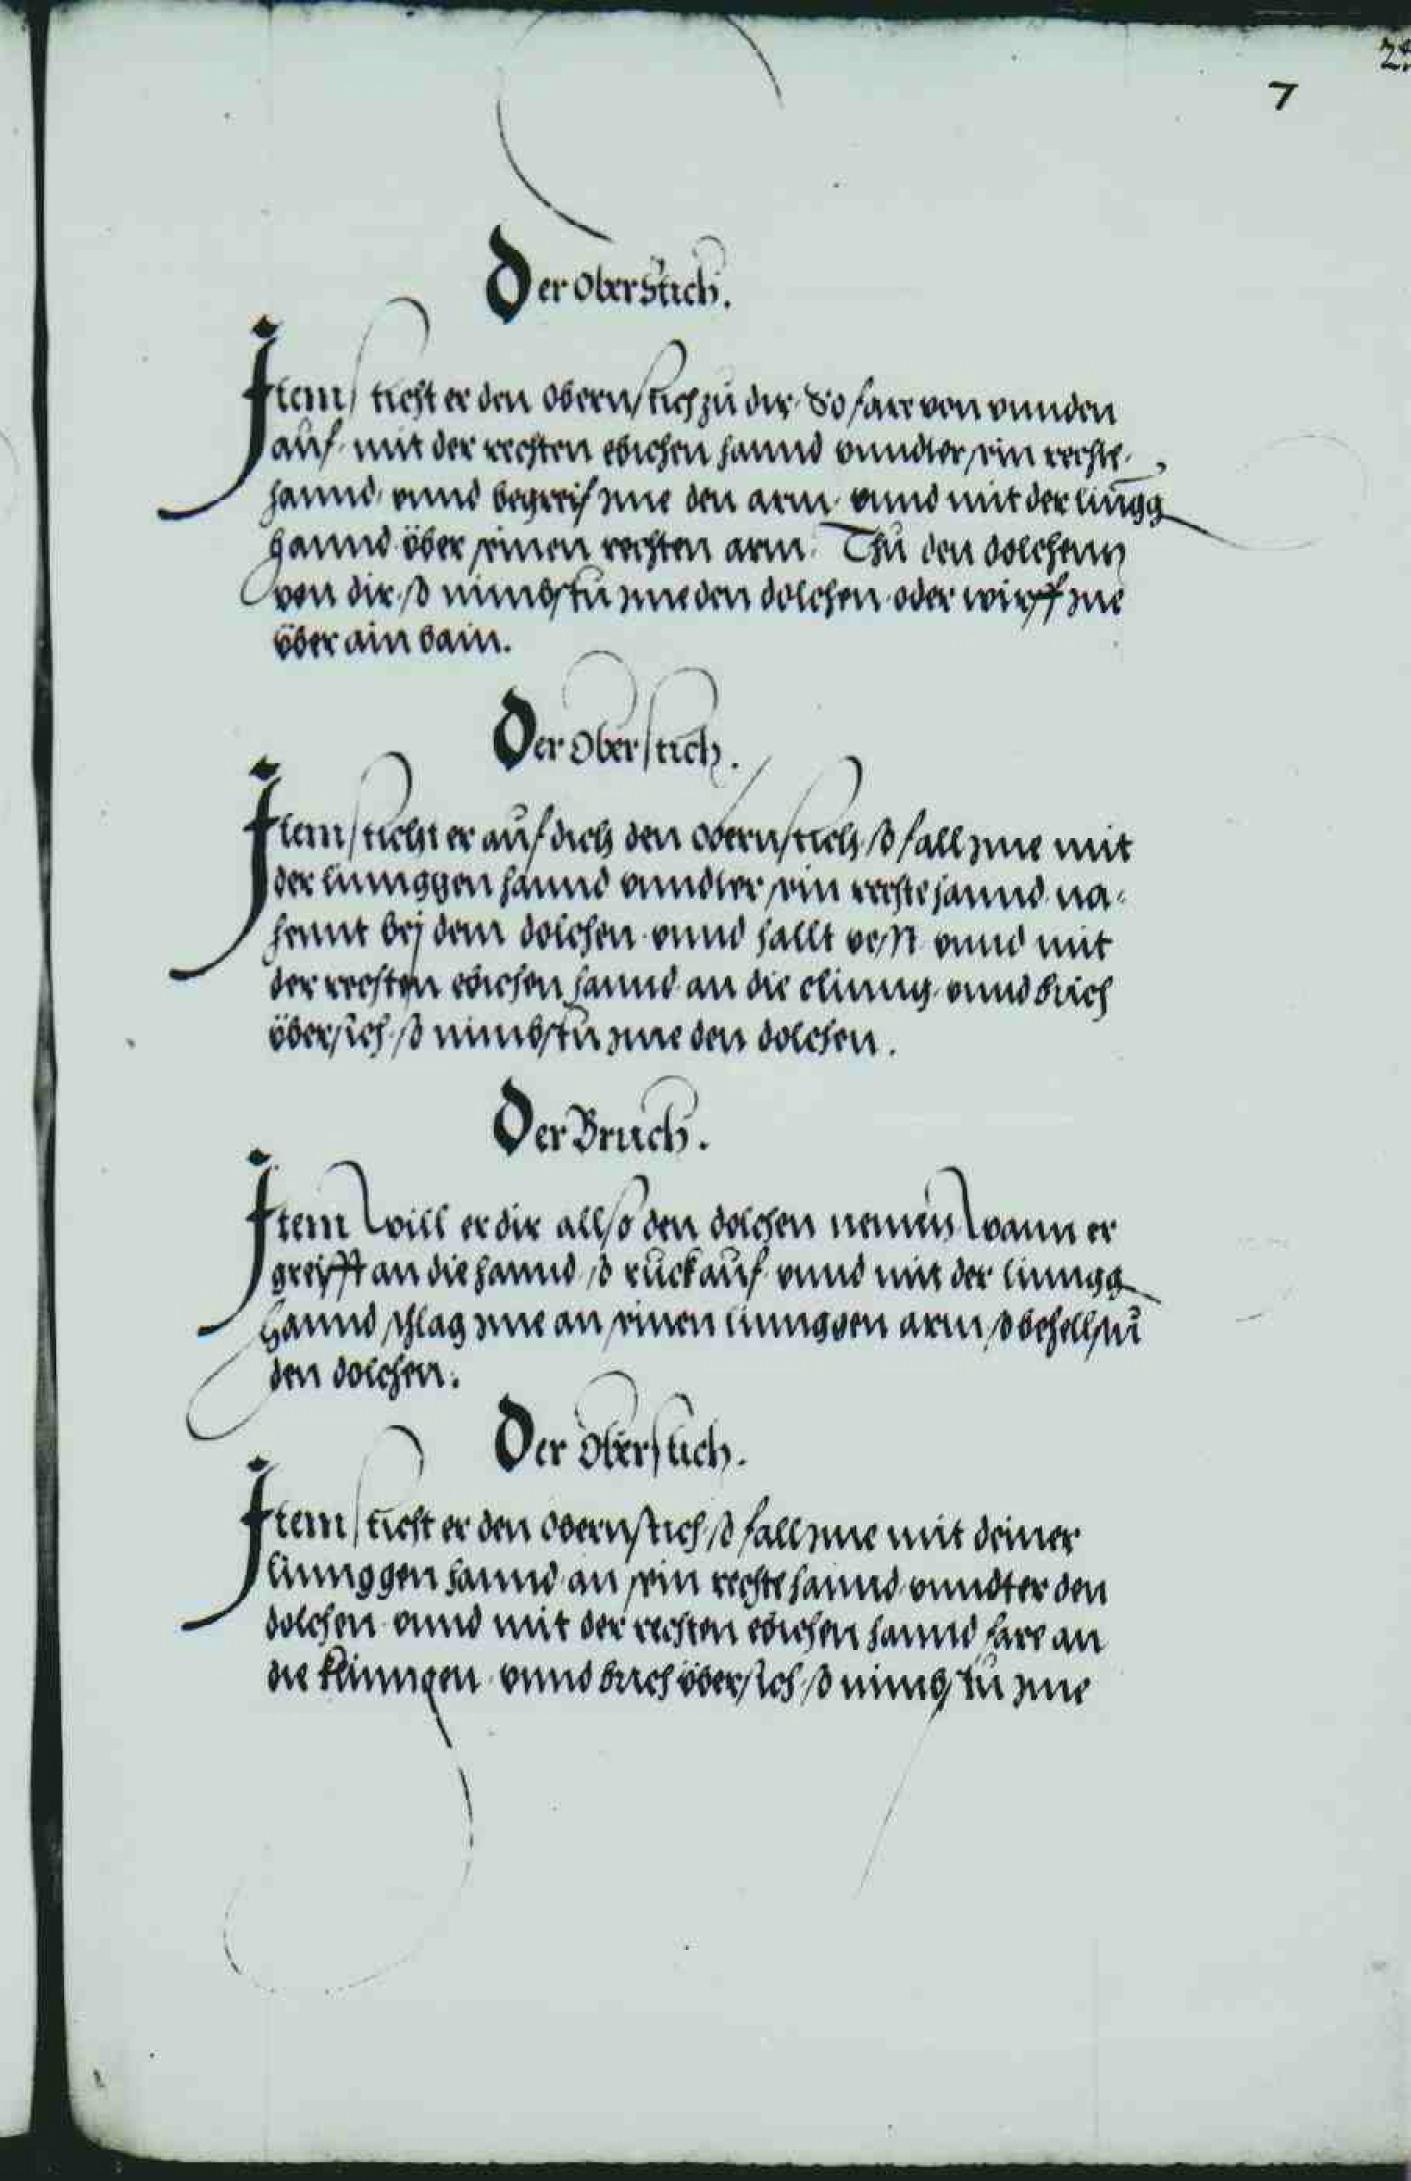 7
Der Oberstich.
Item sticht er den Obern stich zů dir. So fare von vnnden
auf. mit der rechten ebichen hannd vnndter sein rechte.
hannd. vnnd begreif Ime den arm. vnnd mit der lingg
hannd. über seinen rechten arm. Thů den dolchenn
von dir. so nimbstu Ime den dolchen. oder wirff Ine
über ain bain.
Der Oberstich.
Item sticht er auf dich den Obernstich. so fall Ime mit
der linnggen hannd vnndter sein rechte hannd. na-
hennt bej dem dolchen. vnnd hallt vest vnnd mit
der rechten ebichen hannd. an die clinng. vnnd brich
übersich. so nimbstu Ime den dolchen.
Der Bruch.
Item will er dir allso den dolchen nemen Wann er
greifft an die hannd. so ruck auf. vnnd mit der linngg
hannd schlag Ime an seinen linnggen arm so behellstu
den dolchen.
Der Oberstich.
Item sticht er den Obernstich. so fall Ime mit deiner
linnggen hannd. an sein rechte hannd. vnndter den
dolchen. vnnd mit der rechten ebichen hannd fare an
die klinngen. vnnd brich übersich. so nimbstu Ime